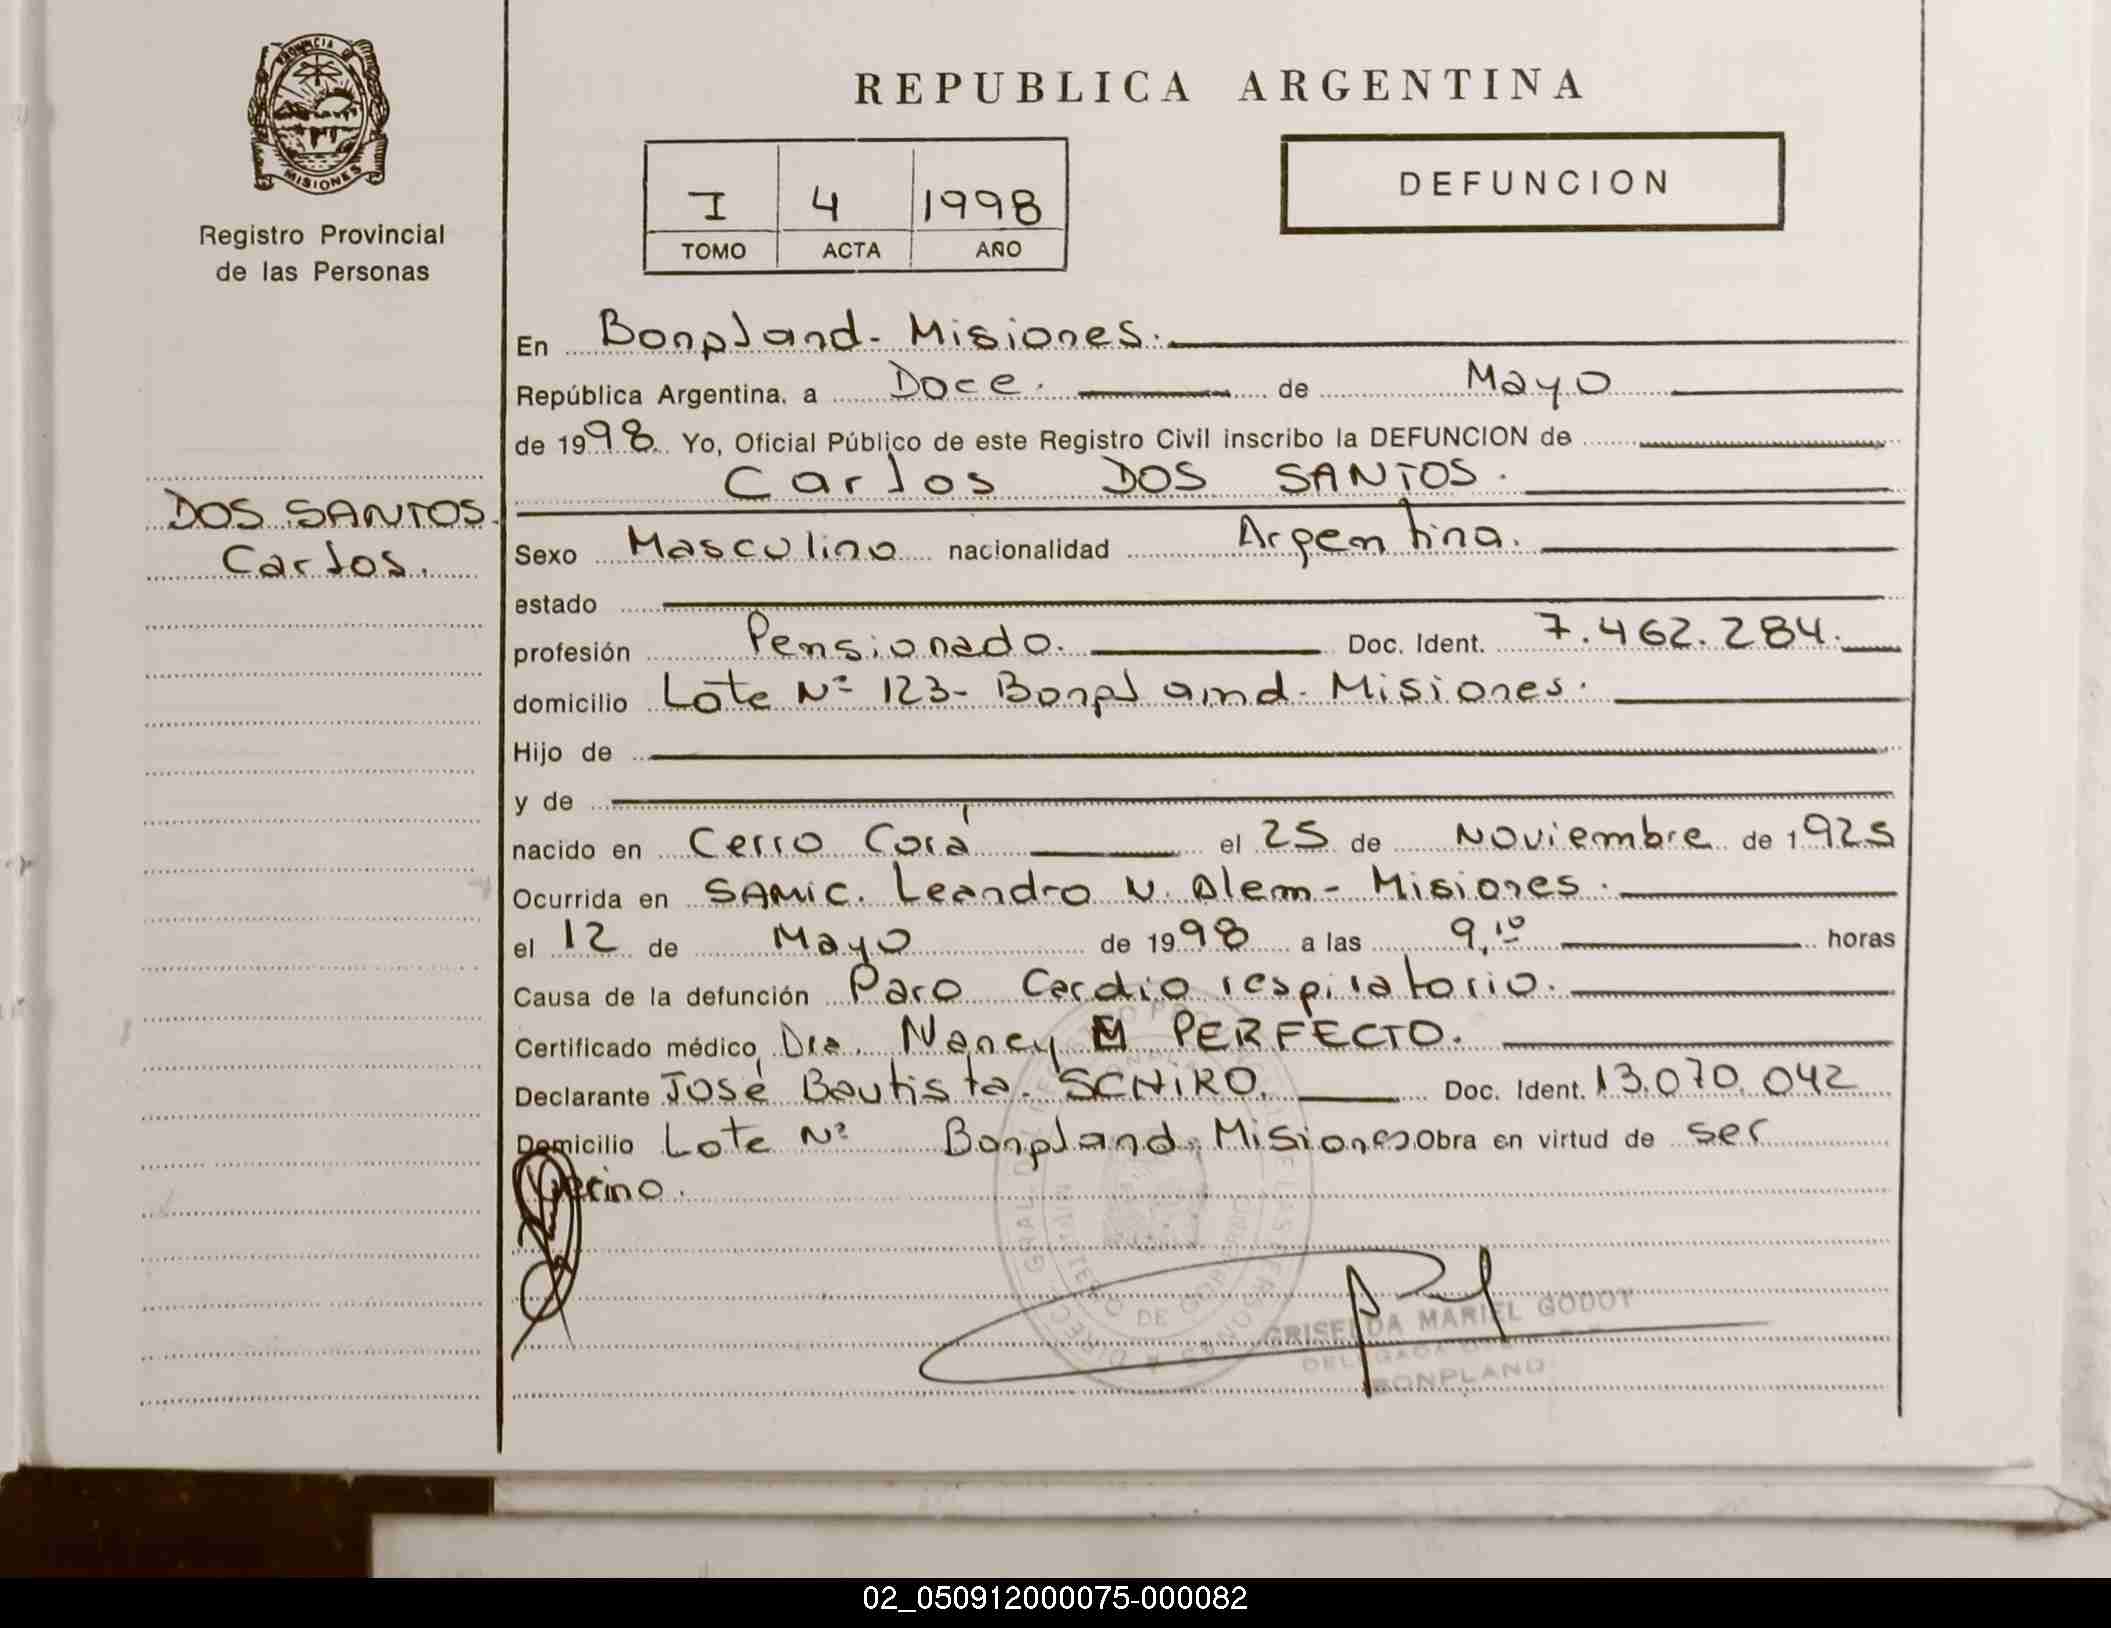 PROVINCIA DE
MISIONES
Registro Provincial
de las Personas
REPUBLICA ARGENTINA
I 4 1998
TOMO ACTA AÑO
DEFUNCION
DOS SANTOS.
Carlos.
En Bonpland - Misiones.
República Argentina, a Doce. de Mayo
de 1998. Yo, Oficial Público de este Registro Civil inscribo la DEFUNCION de
Carlos DOS SANTOS.
Sexo Masculino nacionalidad Argentina.
estado
profesión Pensionado. Doc. Ident. 7.462.284.
domicilio Lote Nº 123 - Bonpland - Misiones.
Hijo de
y de
nacido en Cerro Corá el 25 de Noviembre de 1925
Ocurrida en SAMIC. Leandro N. Alem - Misiones.
el 12 de Mayo de 1998 a las 9,10 horas
Causa de la defunción Paro Cardio respiratorio.
Certificado médico, Dra. Nancy M PERFECTO.
Declarante José Bautista SCHIRO. Doc. Ident. 13.070.042
Domicilio Lote Nº Bonpland - Misiones Obra en virtud de ser
GRISELDA MARIEL GODOT
DELEGADA
BONPLAND
02_050912000075-000082